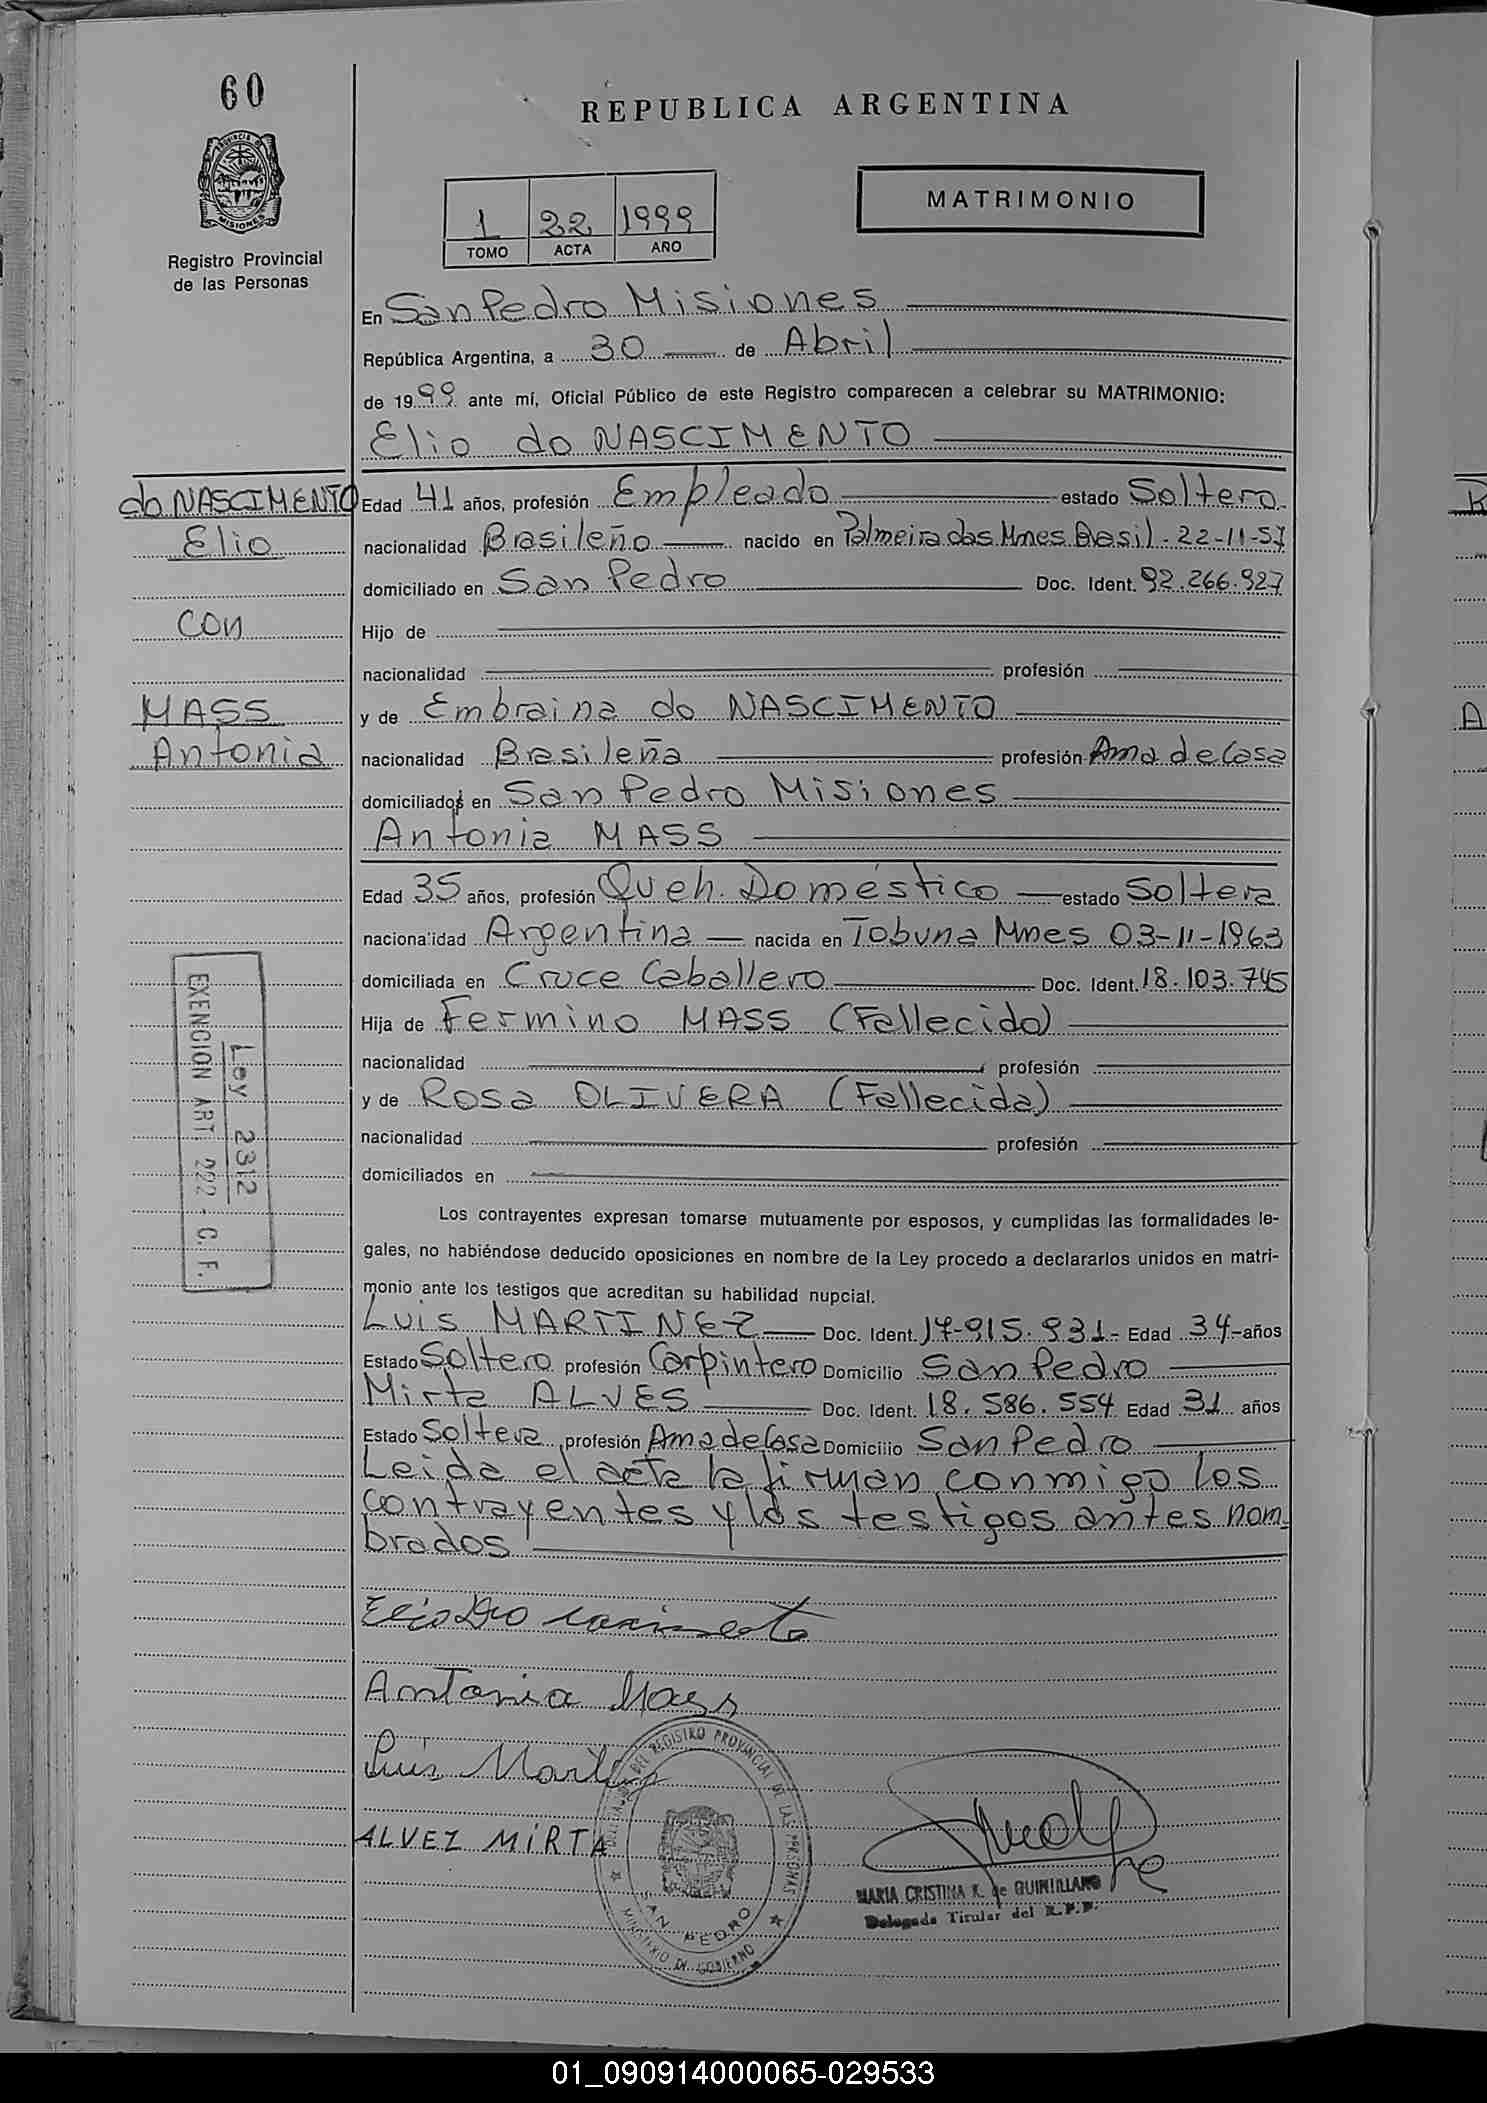 60
REPUBLICA ARGENTINA
MATRIMONIO
1 22 1999
TOMO ACTA AÑO
Registro Provincial
de las Personas
En San Pedro Misiones
República Argentina, a 30 de Abril
de 1999 ante mí, Oficial Público de este Registro comparecen a celebrar su MATRIMONIO:
Elio do NASCIMENTO
do NASCIMENTO
Elio
con
MASS
Antonia
Edad 41 años, profesión Empleado estado Soltero
nacionalidad Brasileño nacido en Palmeira das Mnes Brasil - 22-11-57
domiciliado en San Pedro Doc. Ident. 92.266.927
Hijo de
nacionalidad profesión
y de Embraina do NASCIMENTO
nacionalidad Brasileña profesión Ama de Casa
domiciliados en San Pedro Misiones
Antonia MASS
Edad 35 años, profesión Queh. Doméstico estado Soltera
nacionalidad Argentina nacida en Tobuna Mnes 03-11-1963
domiciliada en Cruce Caballero Doc. Ident. 18.103.745
Hija de Fermino MASS (Fallecido)
nacionalidad profesión
y de Rosa OLIVERA (Fallecida)
nacionalidad profesión
domiciliados en
Ley 2312
EXENCION ART. 222 - C. F.
Los contrayentes expresan tomarse mutuamente por esposos, y cumplidas las formalidades le-
gales, no habiéndose deducido oposiciones en nombre de la Ley procedo a declararlos unidos en matri-
monio ante los testigos que acreditan su habilidad nupcial.
Luis MARTINEZ Doc. Ident. 17-915.931- Edad 34-años
Estado Soltero profesión Carpintero Domicilio San Pedro
Mirta ALVES Doc. Ident. 18.586.554 Edad 31 años
Estado Soltera profesión Ama de Casa Domicilio San Pedro
Leida el acta la firman conmigo los
contrayentes y los testigos antes nom-
brados
Elio Do nascimento
Antonia Mass
Luis Martinez
ALVEZ MIRTA
DELEGACION DEL REGISTRO PROVINCIAL DE LAS PERSONAS
SAN PEDRO
MINISTERIO DE GOBIERNO
MARIA CRISTINA K. de QUINTILLANO
Delegada Titular del R.P.P.
01_090914000065-029533